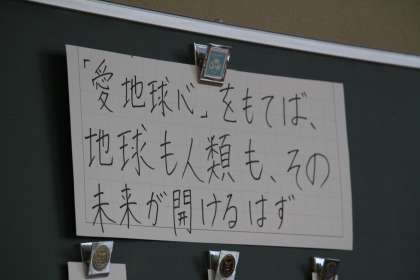 「愛地球心」をもてば、
地球も人類も、その
未来が開けるはず